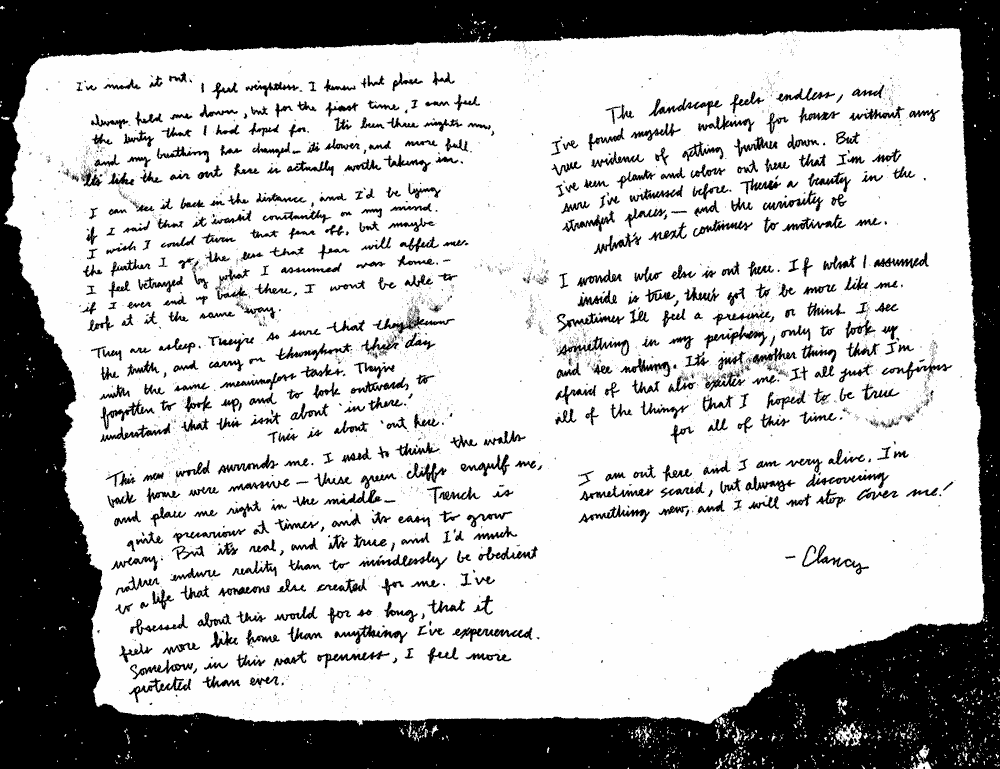 I've made it out. I feel weightless. I knew that place had
always held me down, but for the first time, I can feel
the levity that I had hoped for. It's been three nights now,
and my breathing has changed — it's slower, and more full.
It's like the air out here is actually worth taking in.
I can see it back in the distance, and I'd be lying
if I said that it wasn't constantly on my mind.
I wish I could turn that fear off, but maybe
the further I go, the less that fear will affect me.
I feel betrayed by what I assumed was home. —
if I ever end up back there, I wont be able to
look at it the same way.
They are asleep. They're so sure that they know
the truth, and carry on throughout their day
with the same meaningless tasks. They've
forgotten to look up, and to look outward, to
understand that this isn't about 'in there.'
This is about 'out here.'
This new world surronds me. I used to think the walls
back home were massive — these green cliffs engulf me,
and place me right in the middle — Trench is
quite precarious at times, and its easy to grow
weary. But it's real, and it's true, and I'd much
rather endure reality than to mindlessly be obedient
to a life that someone else created for me. I've
obsessed about this world for so long, that it
feels more like home than anything I've experienced.
Somehow, in this vast openness, I feel more
protected than ever.
The landscape feels endless, and
I've found myself walking for hours without any
true evidence of getting further down. But
I've seen plants and colors out here that I'm not
sure I've witnessed before. There's a beauty in the
strangest places, — and the curiosity of
what's next continues to motivate me.
I wonder who else is out here. If what I assumed
inside is true, there's got to be more like me.
Sometimes I'll feel a presence, or think I see
something in my periphery, only to look up
and see nothing. It's just another thing that I'm
afraid of that also excites me. It all just confirms
all of the things that I hoped to be true
for all of this time.
I am out here and I am very alive. I'm
sometimes scared, but always discovering
something new, and I will not stop. Cover me!
— Clancy